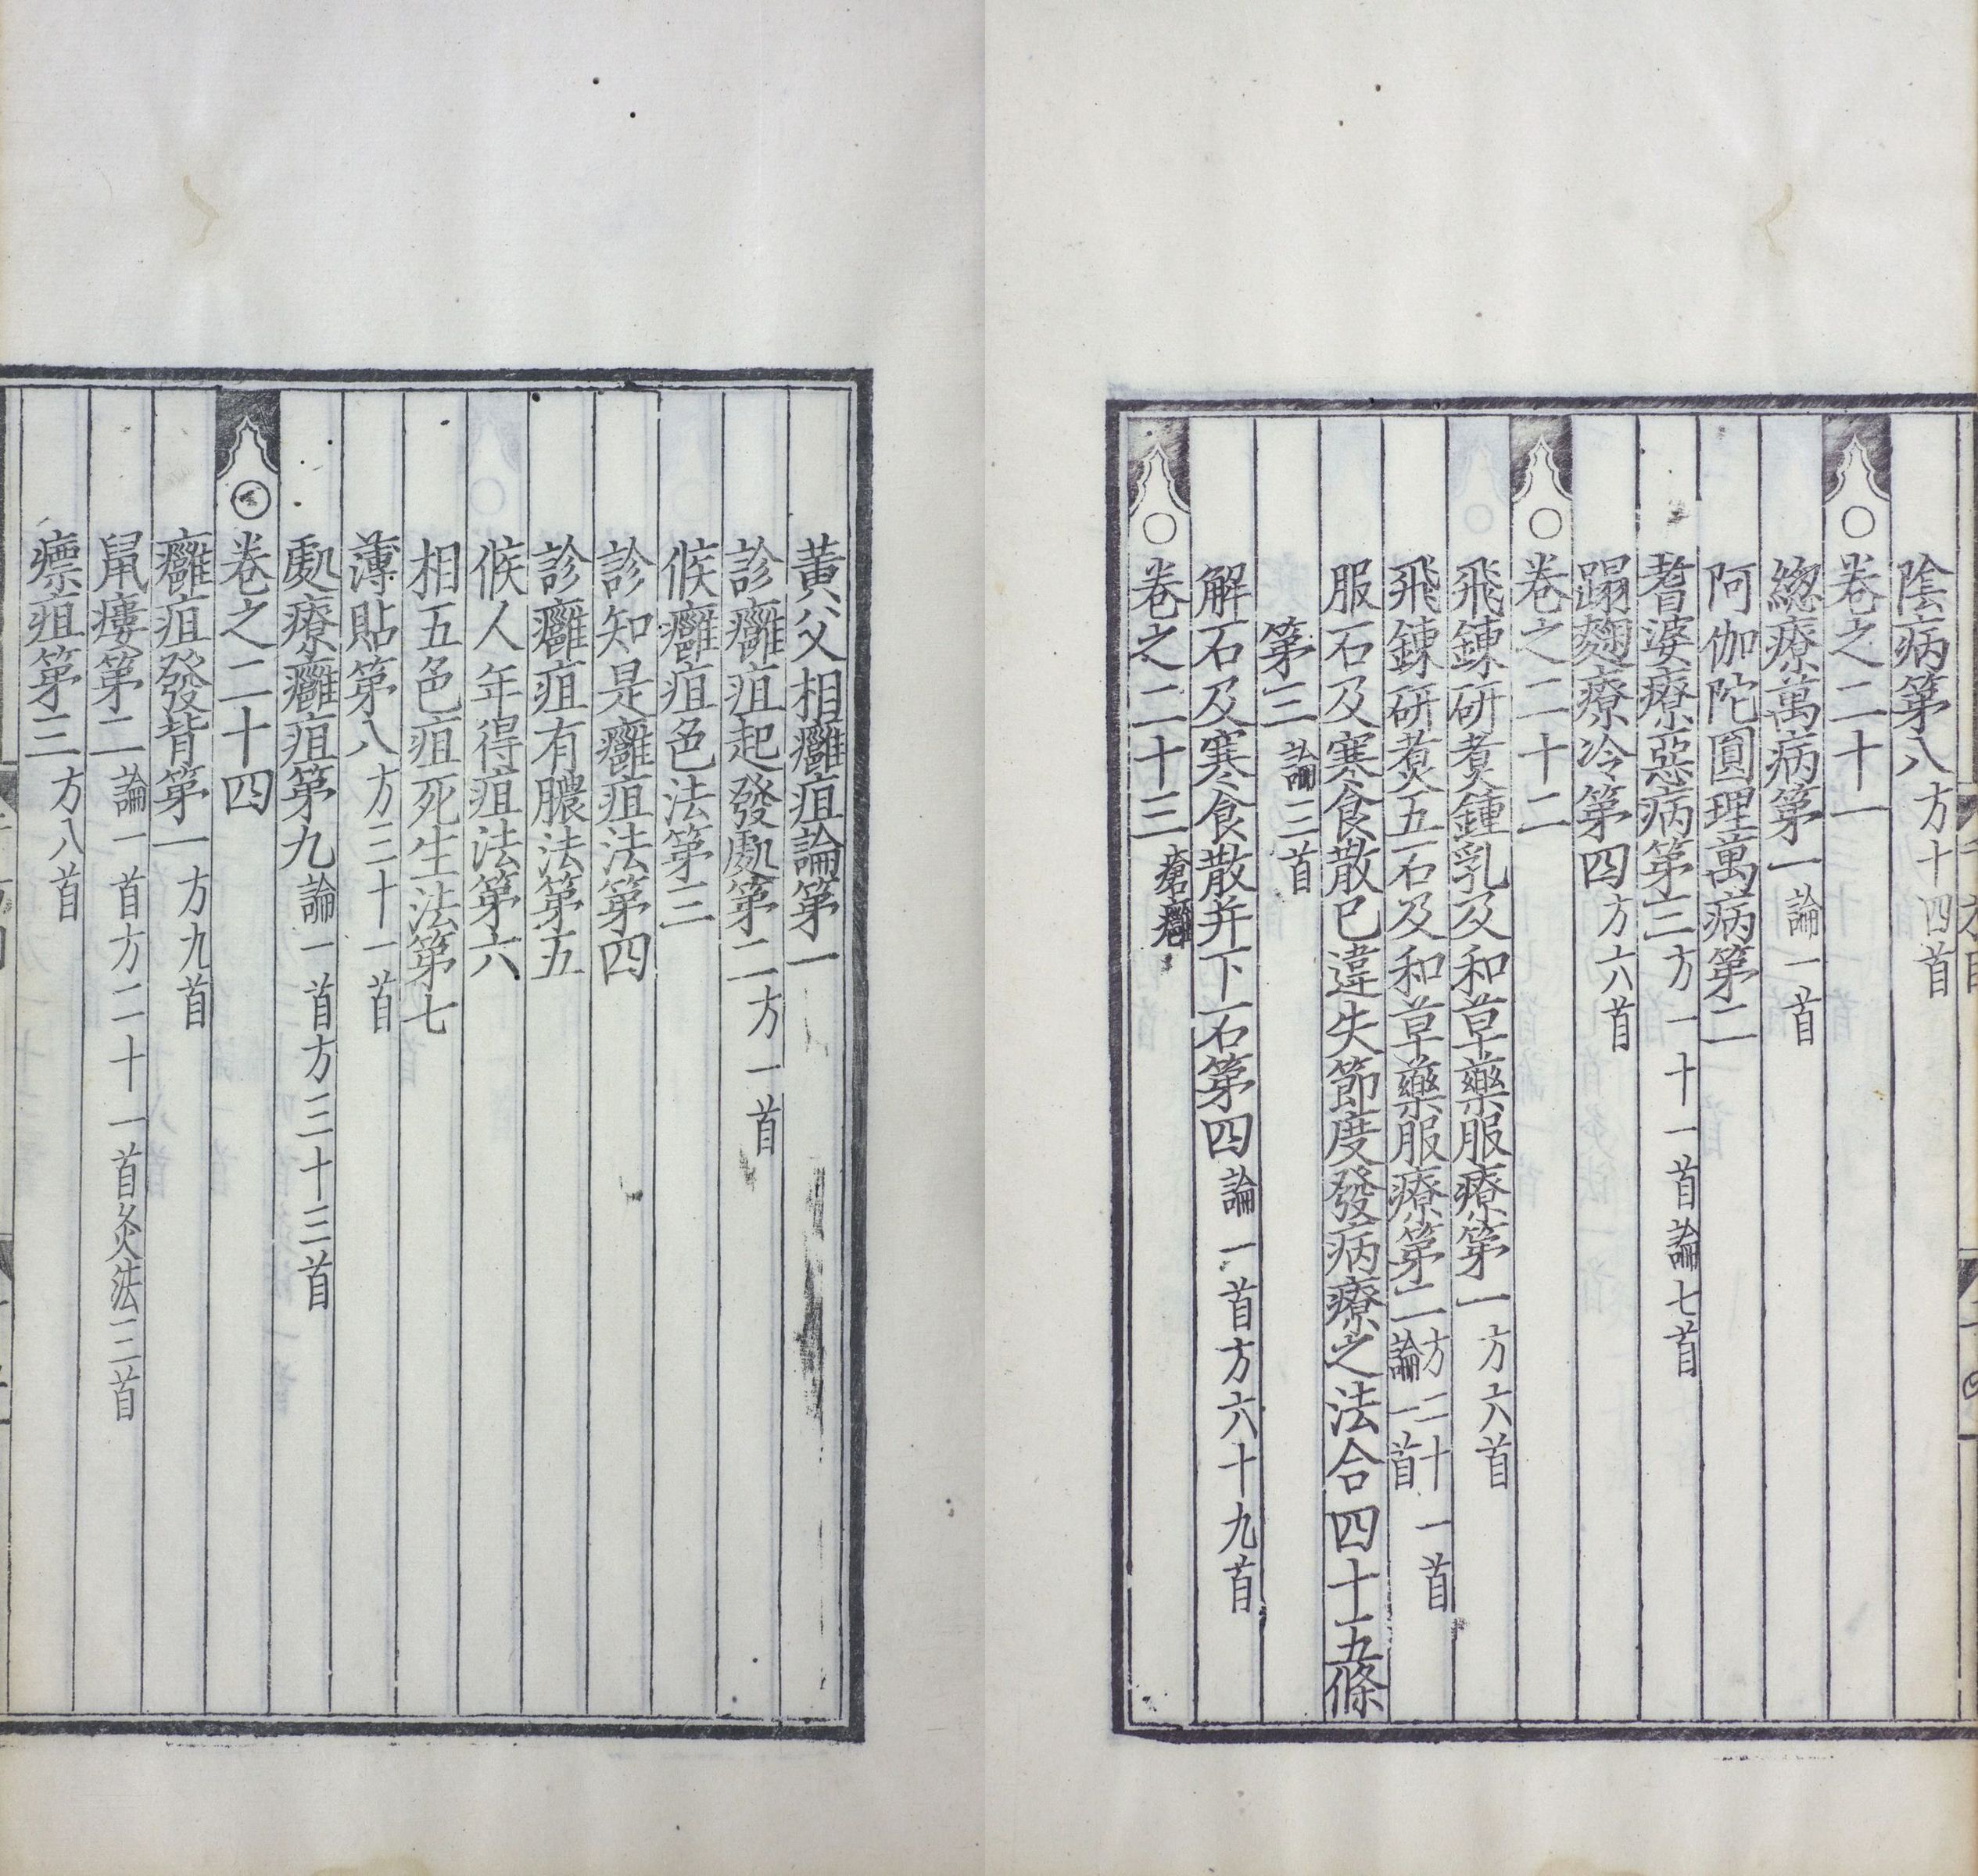 陰病第八方十四首
卷之二十一
緫療萬病第一論一首
阿伽陀圓理萬病第二
耆婆療惡病第三方一十一首論七首
蹋麴療冷第四方六首
卷之二十二
飛鍊研煑鍾乳及和草藥服療第一方六首
飛鍊研煑五石及和草藥服療第二方二十一首論一首
服石及寒食散已違失節度發病療之法合四十五條
第三論三首
解石及寒食散并下石第四論一首方六十九首
卷之二十三瘡癰
黃父相癰疽論第一
診癰疽起發處第二方一首
候癰疽色法第三
診知是癰疽法第四
診癰疽有膿法第五
候人年得疽法第六
相五色疽死生法第七
薄貼第八方三十一首
處療癰疽第九論一首方三十三首
卷之二十四
癰疽發背第一方九首
鼠瘻第二論一首方二十一首灸法三首
瘭疽第三方八首